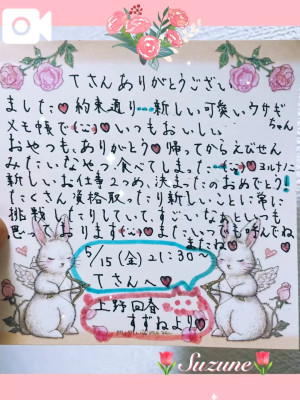 Tさんありがとうござい
ました♥約束通り…新しい可愛いウサギちゃん
メモ帳で(¨)♥いつもおいしい
おやつも、ありがとう♥帰ってからえびせん
みたいなやつ食べてしまった…(¨)♥ヨルナノニ
新しいお仕事2つめ、決まったのおめでとう!
たくさん資格取ったり新しいことに常に
挑戦したりしていて、すごいなぁといつも
思っております(¨)♥またいつでも呼んでね
またね♡
5/15(金)21:30〜
Tさんへ♥
上野回春
すずねより♥
Suzune